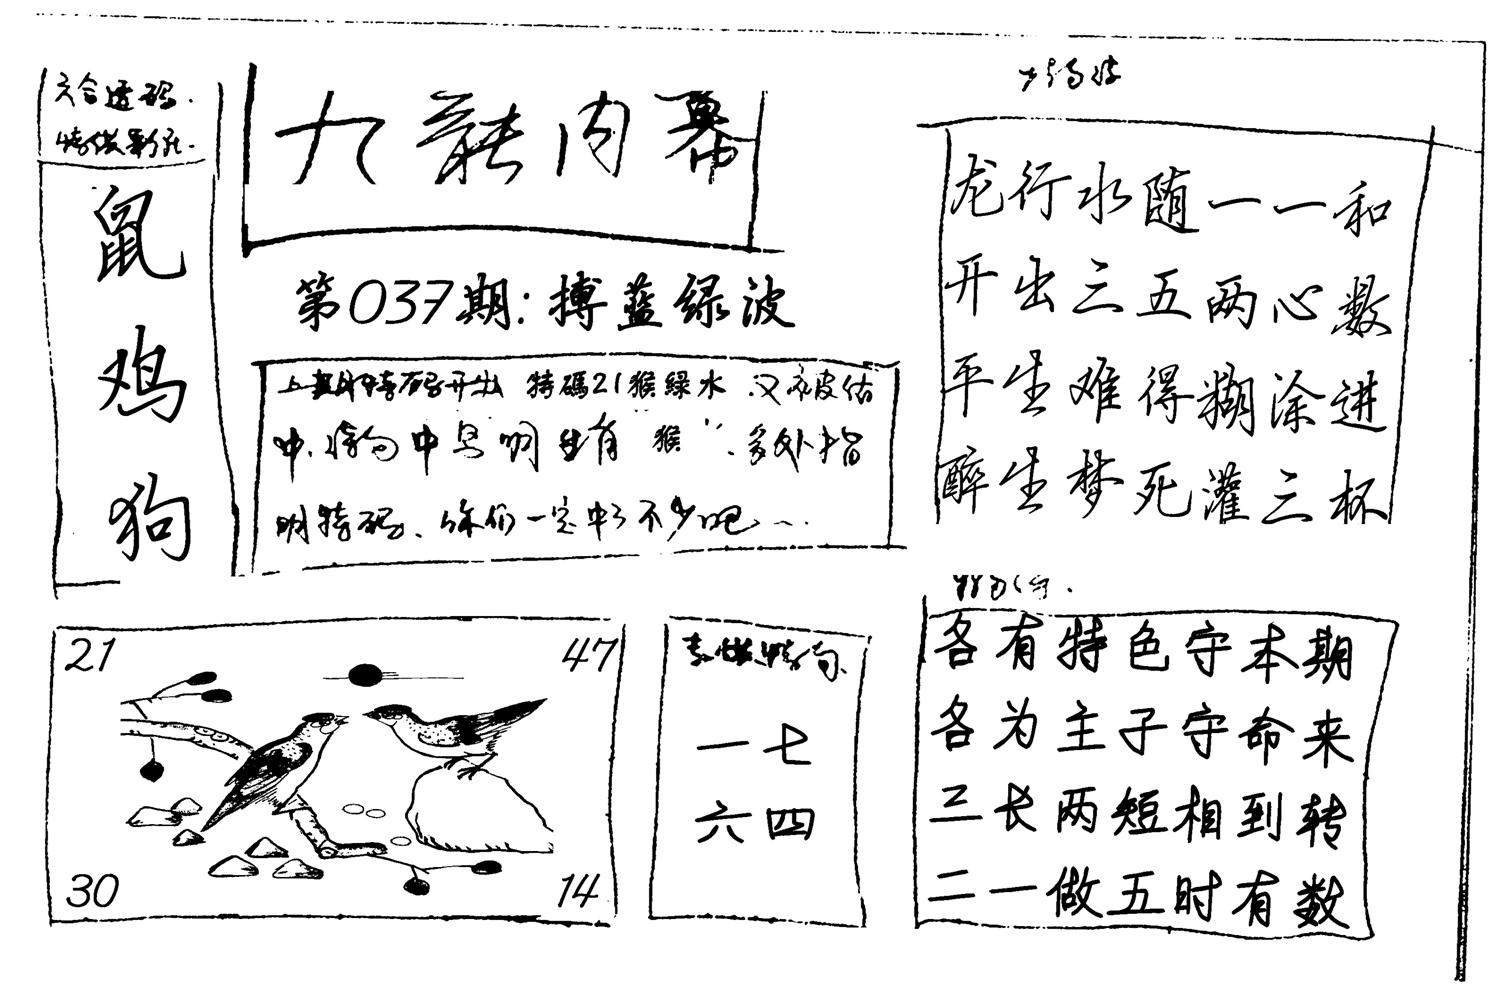 六合透码.
鼠
鸡
狗
九龍内幕
第037期:搏蓝绿波
上期特码开出 特碼21猴绿水.又被估
中.特句中号明生肖"猴".多处指
明特码、你们一定中了不少吧...
21
47
30
14
一七
六四
龙行水随一一和
开出三五两心数
平生难得糊涂进
醉生梦死灌三杯
各有特色守本期
各为主子守命来
三长两短相到转
二一做五时有数